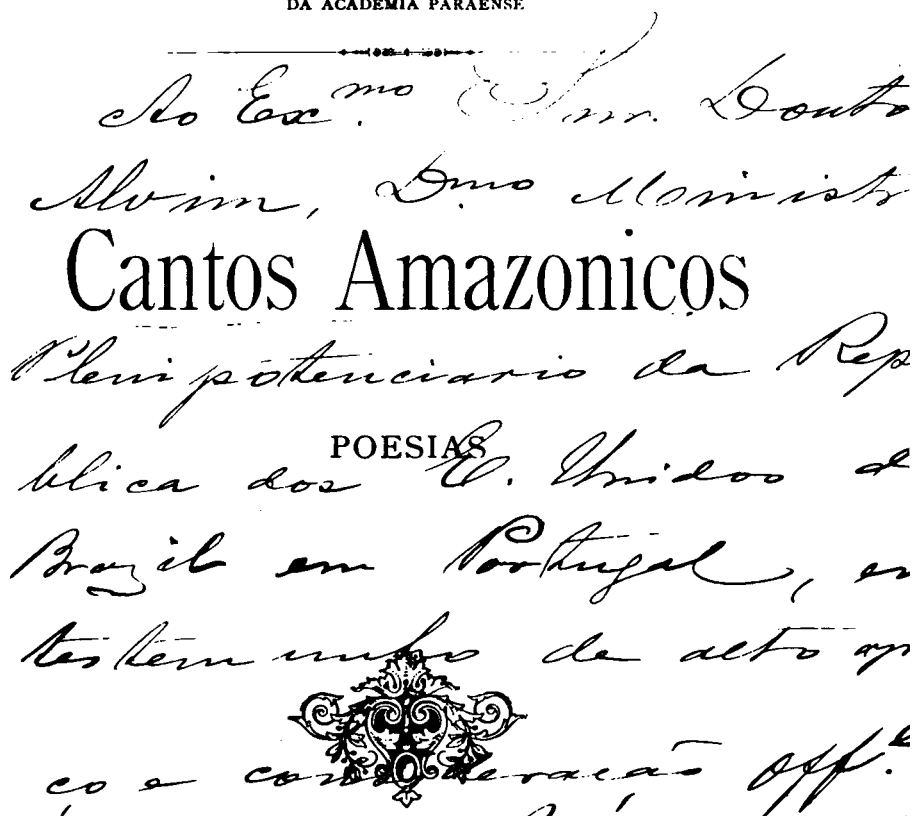 DA ACADEMIA PARAENSE
Ao Ex.mo Snr. Douto
Alvim, Dmo Ministr
Cantos Amazonicos
Plenipotenciario da Rep
POESIAS
blica dos E. Unidos d
Brazil em Portugal, en
testemunho de alto ap
ço e consideração off.e